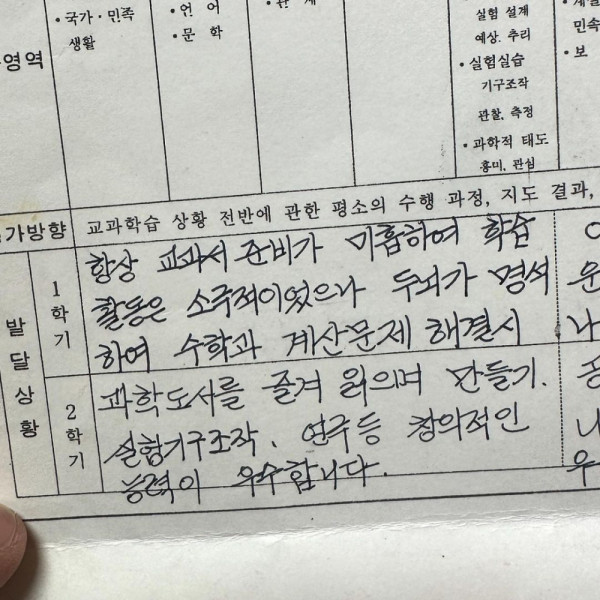 • 국가·민족
생활
• 언어
• 문학
영역
실험 설계
예상. 추리
• 실험실습
기구조작
관찰. 측정
• 과학적 태도
흥미. 관심
민속
• 보
가방향
교과학습 상황 전반에 관한 평소의 수행 과정, 지도 결과,
발달상황
1학기
항상 교과서 준비가 미흡하여 학습
활동은 소극적이었으나 두뇌가 명석
하여 수학과 계산문제 해결시
운
나
2학기
과학도서를 즐겨 읽으며 만들기.
실험기구조작. 연극등 창의적인
능력이 우수합니다.
공
나
우